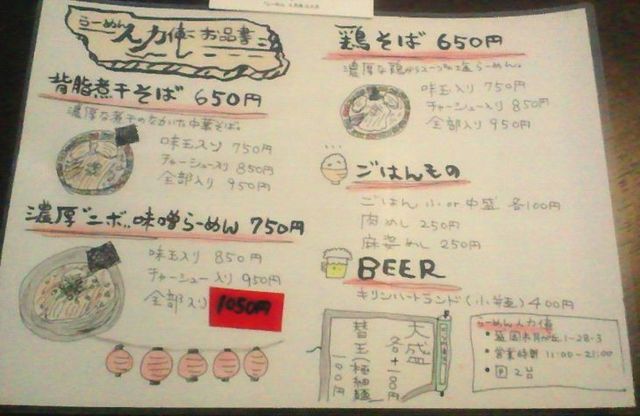 らーめん
人力俥 お品書
背脂煮干そば 650円
濃厚な煮干のなかれた中華そば。
味玉入り 750円
チャーシュー入り 850円
全部入り 950円
濃厚ニボ味噌らーめん 750円
味玉入り 850円
チャーシュー入り 950円
全部入り 1050円
鶏そば 650円
味玉入り 750円
チャーシュー入り 850円
全部入り 950円
ごはんもの
ごはん 小or中盛 各100円
肉めし 250円
麻婆めし 250円
BEER
キリンハートランド(小瓶) 400円
大盛
各+100円
替玉(極細麺)
100円
らーめん人力俥
盛岡市月が丘1-28-3
営業時間 11:00-21:00
P 2台